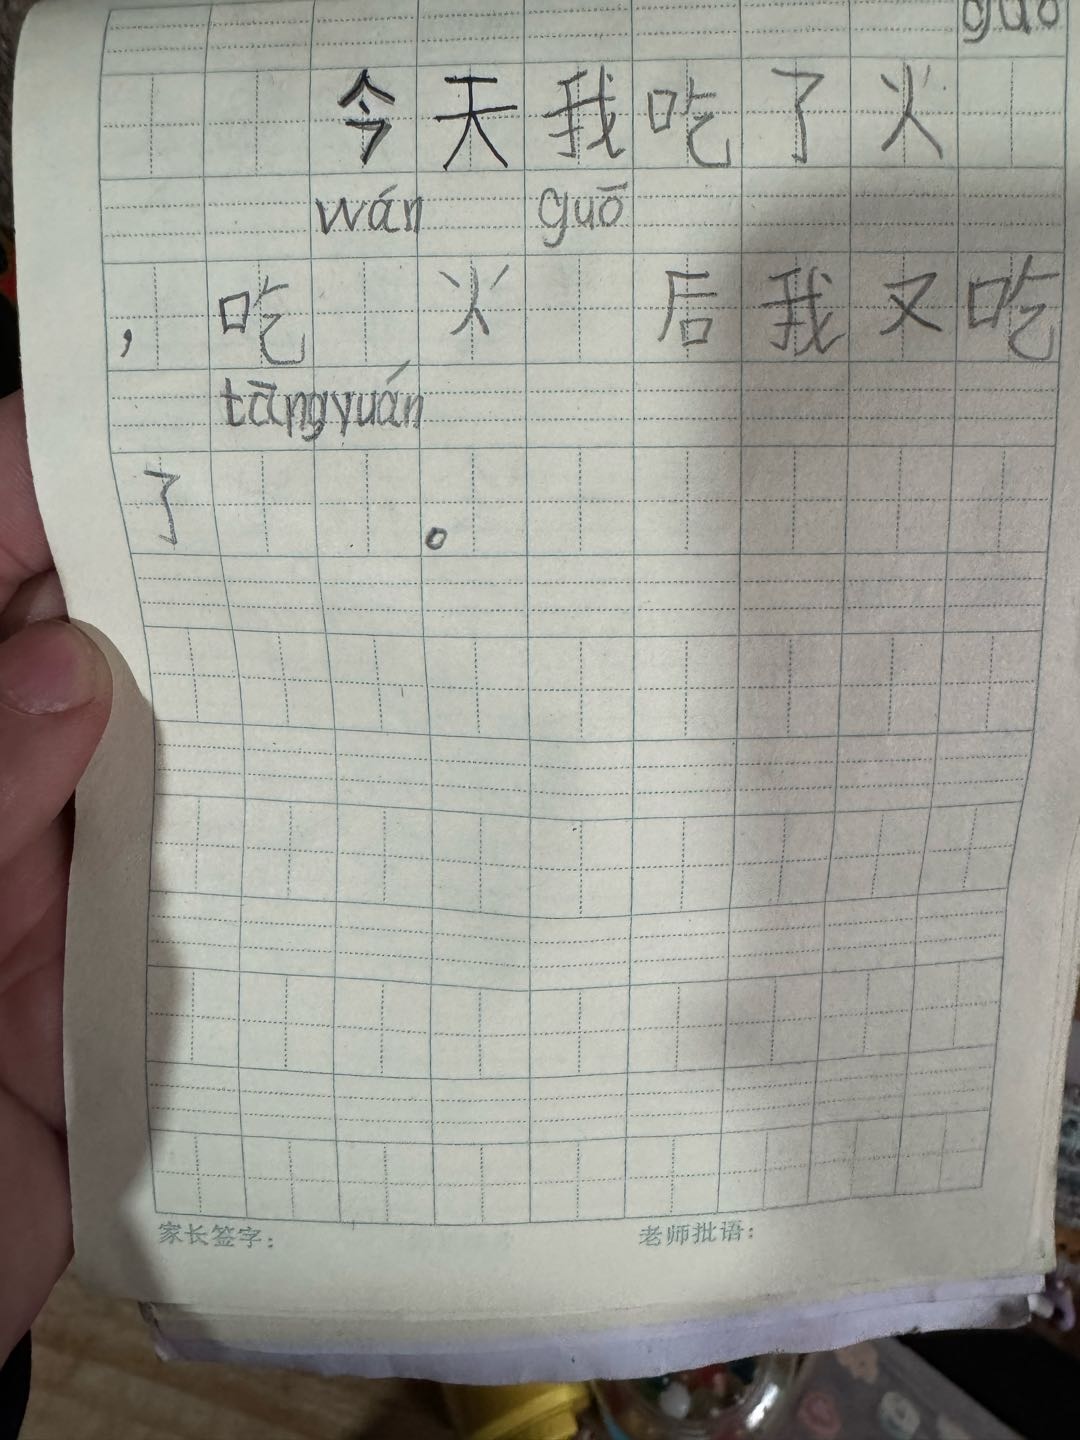 guō
今天我吃了火
wán guō
，吃 火 后我又吃
tāngyuán
了 。
家长签字： 老师批语：